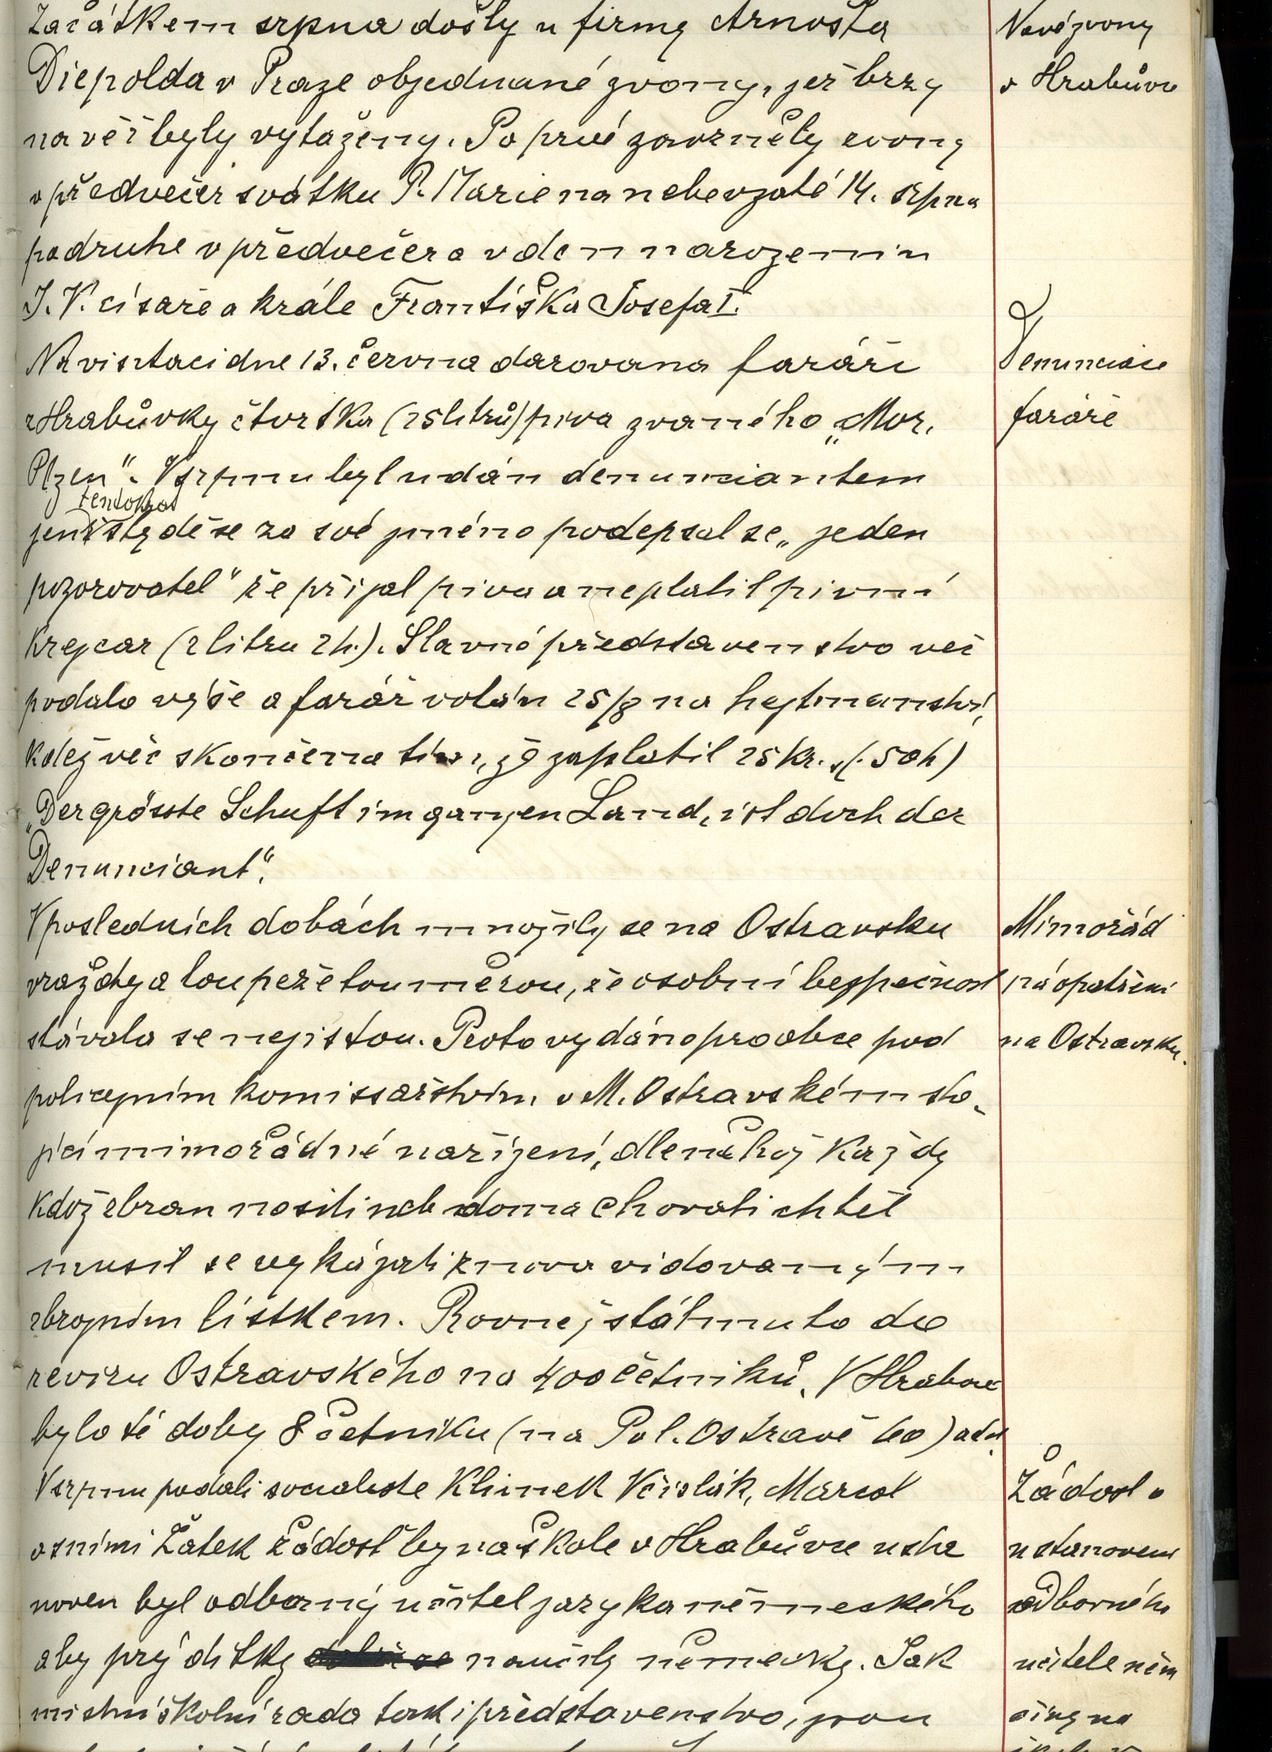 Začátkem srpna došly u firmy Arnošta
Diepolda v Praze objednané zvony, jež brzy
na věž byly vytaženy. Po prvé zavzněly zvony
v předvečer svátku P. Marie na nebevzaté 14. srpna
podruhe v předvečer a v den narozenin
J. V. císaře a krále Františka Josefa I.
Na visitaci dne 13. června darována faráři
z Hrabůvky čtvrtka (25 litrů) piva zvaného „Mor.
Plzen". V srpnu byl udán denunciantem
jenž stydě se za své jméno podepsal se „jeden
pozorovatel" že přijal pivo a neplatil pivní
krejcar (z litru 2h.). Slavné představenstvo věc
podalo výše a farář volán 25/8 na hejtmanství,
kdež věc skončena tím, že zaplatil 25 kr. (50h)
„Der grösste Schuft im ganzen Land, ist doch der
Denunciant".
V posledních dobách množily se na Ostravsku
vraždy a loupeže tou měrou, že osobní bezpečnost
stávala se nejistou. Proto vydáno pro obce pod
policejním komissařstvím v M. Ostravské m sto-
jící mimořádné nařízení, dle něhož každy
kdož zbran nositi neb doma chovati chtěl
musil se vykázati znova vidovaným
zbrojním lístkem. Rovněž stáhnuto do
reviru Ostravského na 400 četníků. V Hrabové
bylo té doby 8 četníku (na Pol. Ostravě 60) atd.
V srpnu podali socialiste Klimek Včislák, Marcol
a s nimi Žátek žádost by na škole v Hrabůvce usta
noven byl odborný učitel jazyka německého
aby prý dítky naučily německy. Jak
místní školní rada tak i představenstvo, jsou
Nové zvony
v Hrabůvce
Denunciace
faráře
Mimořád
ná opatření
na Ostravsku.
Žádost o
ustanovení
odborného
učitele něm
činy na